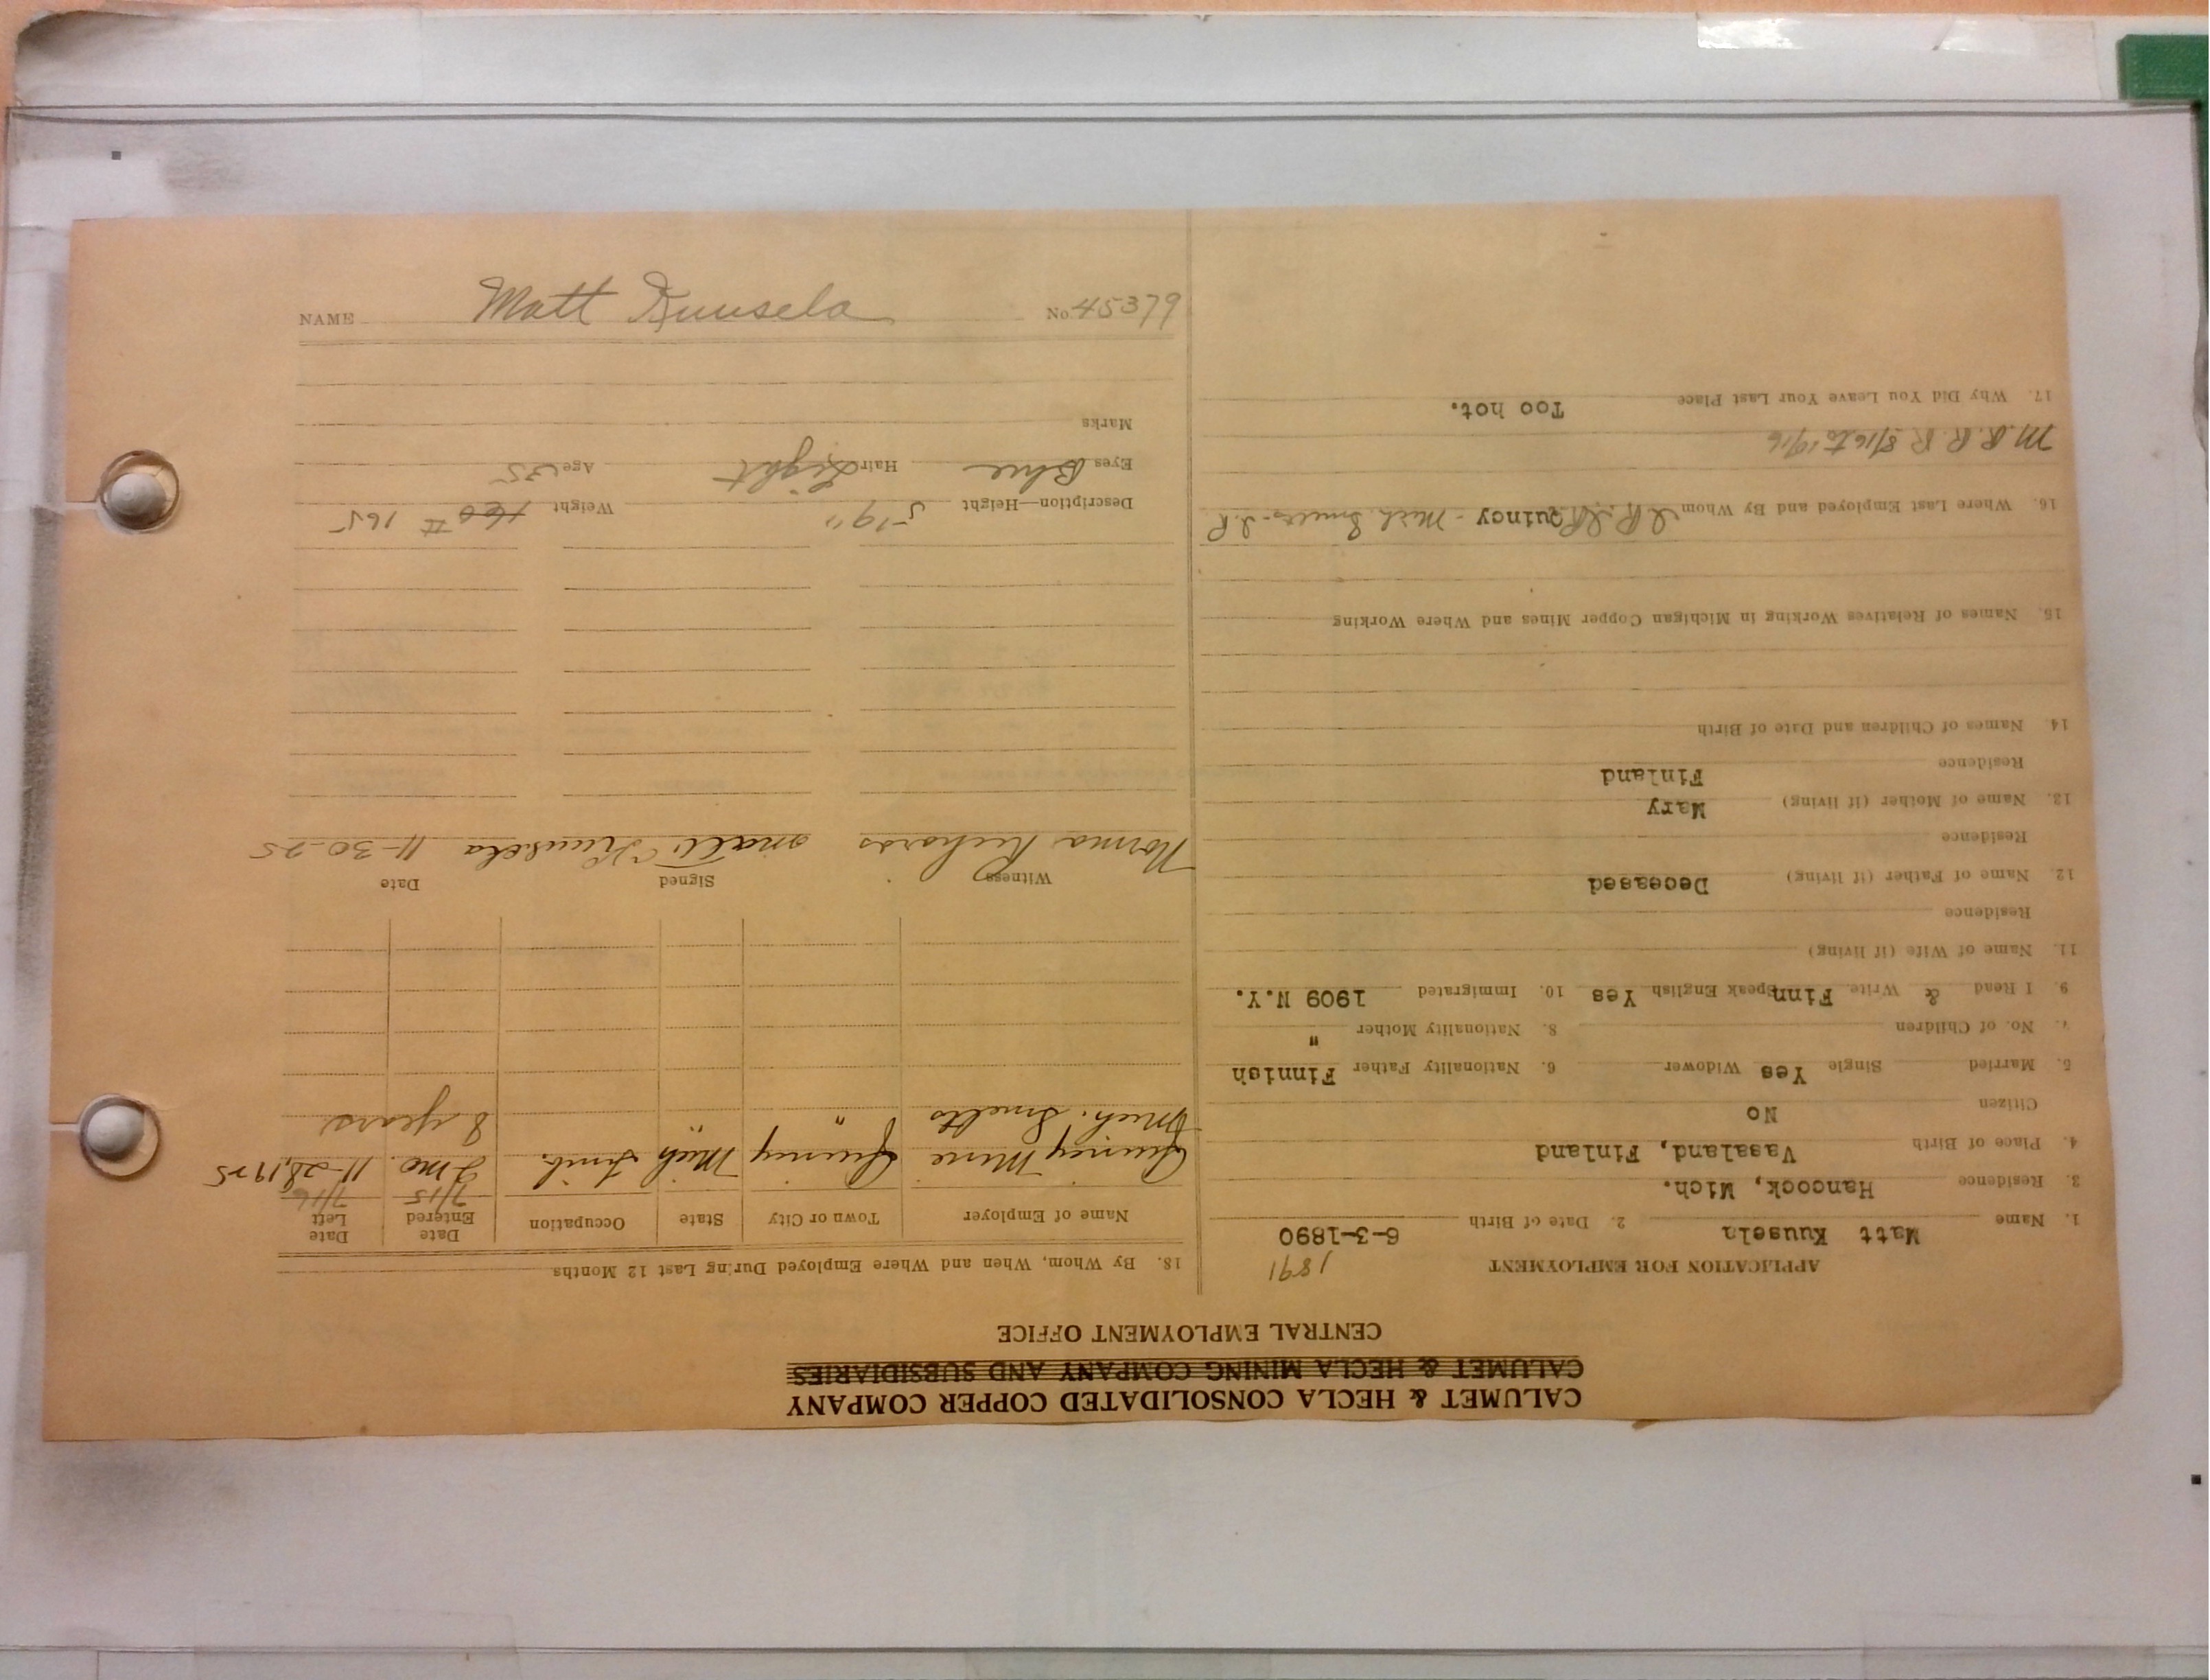 CALUMET & HECLA CONSOLIDATED COPPER COMPANY
CALUMET & HECLA MINING COMPANY AND SUBSIDIARIES
CENTRAL EMPLOYMENT OFFICE
APPLICATION FOR EMPLOYMENT 1891
1. Name Matt Kuusela 2. Date of Birth 6-3-1890
3. Residence Hancock, Mich.
4. Place of Birth Vasaland, Finland
Citizen No
5. Married Single Yes Widower 6. Nationality Father Finnish
7. No. of Children 8. Nationality Mother "
9. I Read & Write Finn Speak English Yes 10. Immigrated 1909 N.Y.
11. Name of Wife (if living)
Residence
12. Name of Father (if living) Deceased
Residence
13. Name of Mother (if living) Mary
Residence Finland
14. Names of Children and Date of Birth
15. Names of Relatives Working in Michigan Copper Mines and Where Working
16. Where Last Employed and By Whom Quincy - Mich Smelter
8/16 to 19/16
17. Why Did You Leave Your Last Place Too hot.
18. By Whom, When and Where Employed During Last 12 Months
Name of Employer Town or City State Occupation Date Entered Date Left
7/15 7/16
Quincy Mine Quincy Mich 2 mo. 11-28, 1925
Mich. Smelts " 8 years
Witness Signed Date
Norma Richards Matt Kuusela 11-30-25
Description—Height 5'9" Weight 160 # 165
Eyes Blue Hair Light Age 35
Marks
NAME Matt Kuusela No. 45379